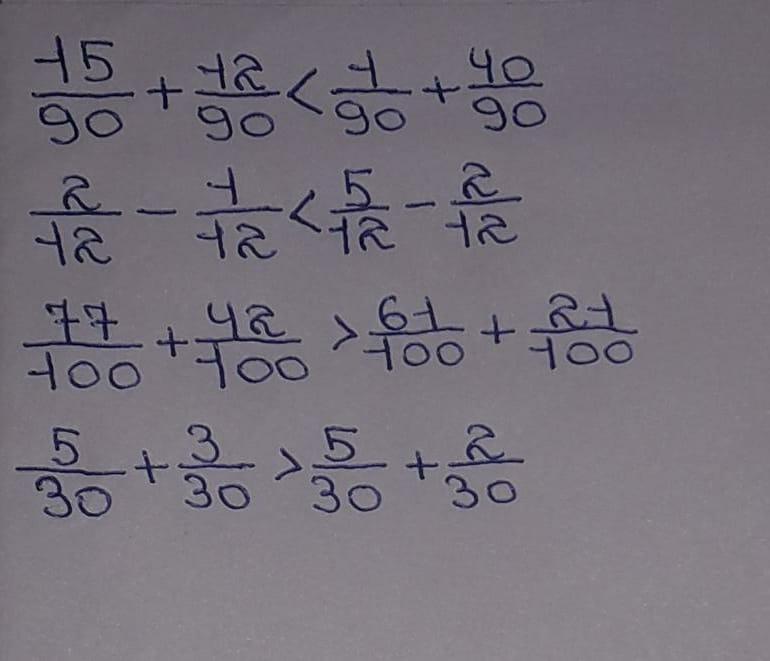 15/90 + 12/90 < 1/90 + 40/90
2/12 - 1/12 < 5/12 - 2/12
77/100 + 42/100 > 61/100 + 21/100
5/30 + 3/30 > 5/30 + 2/30